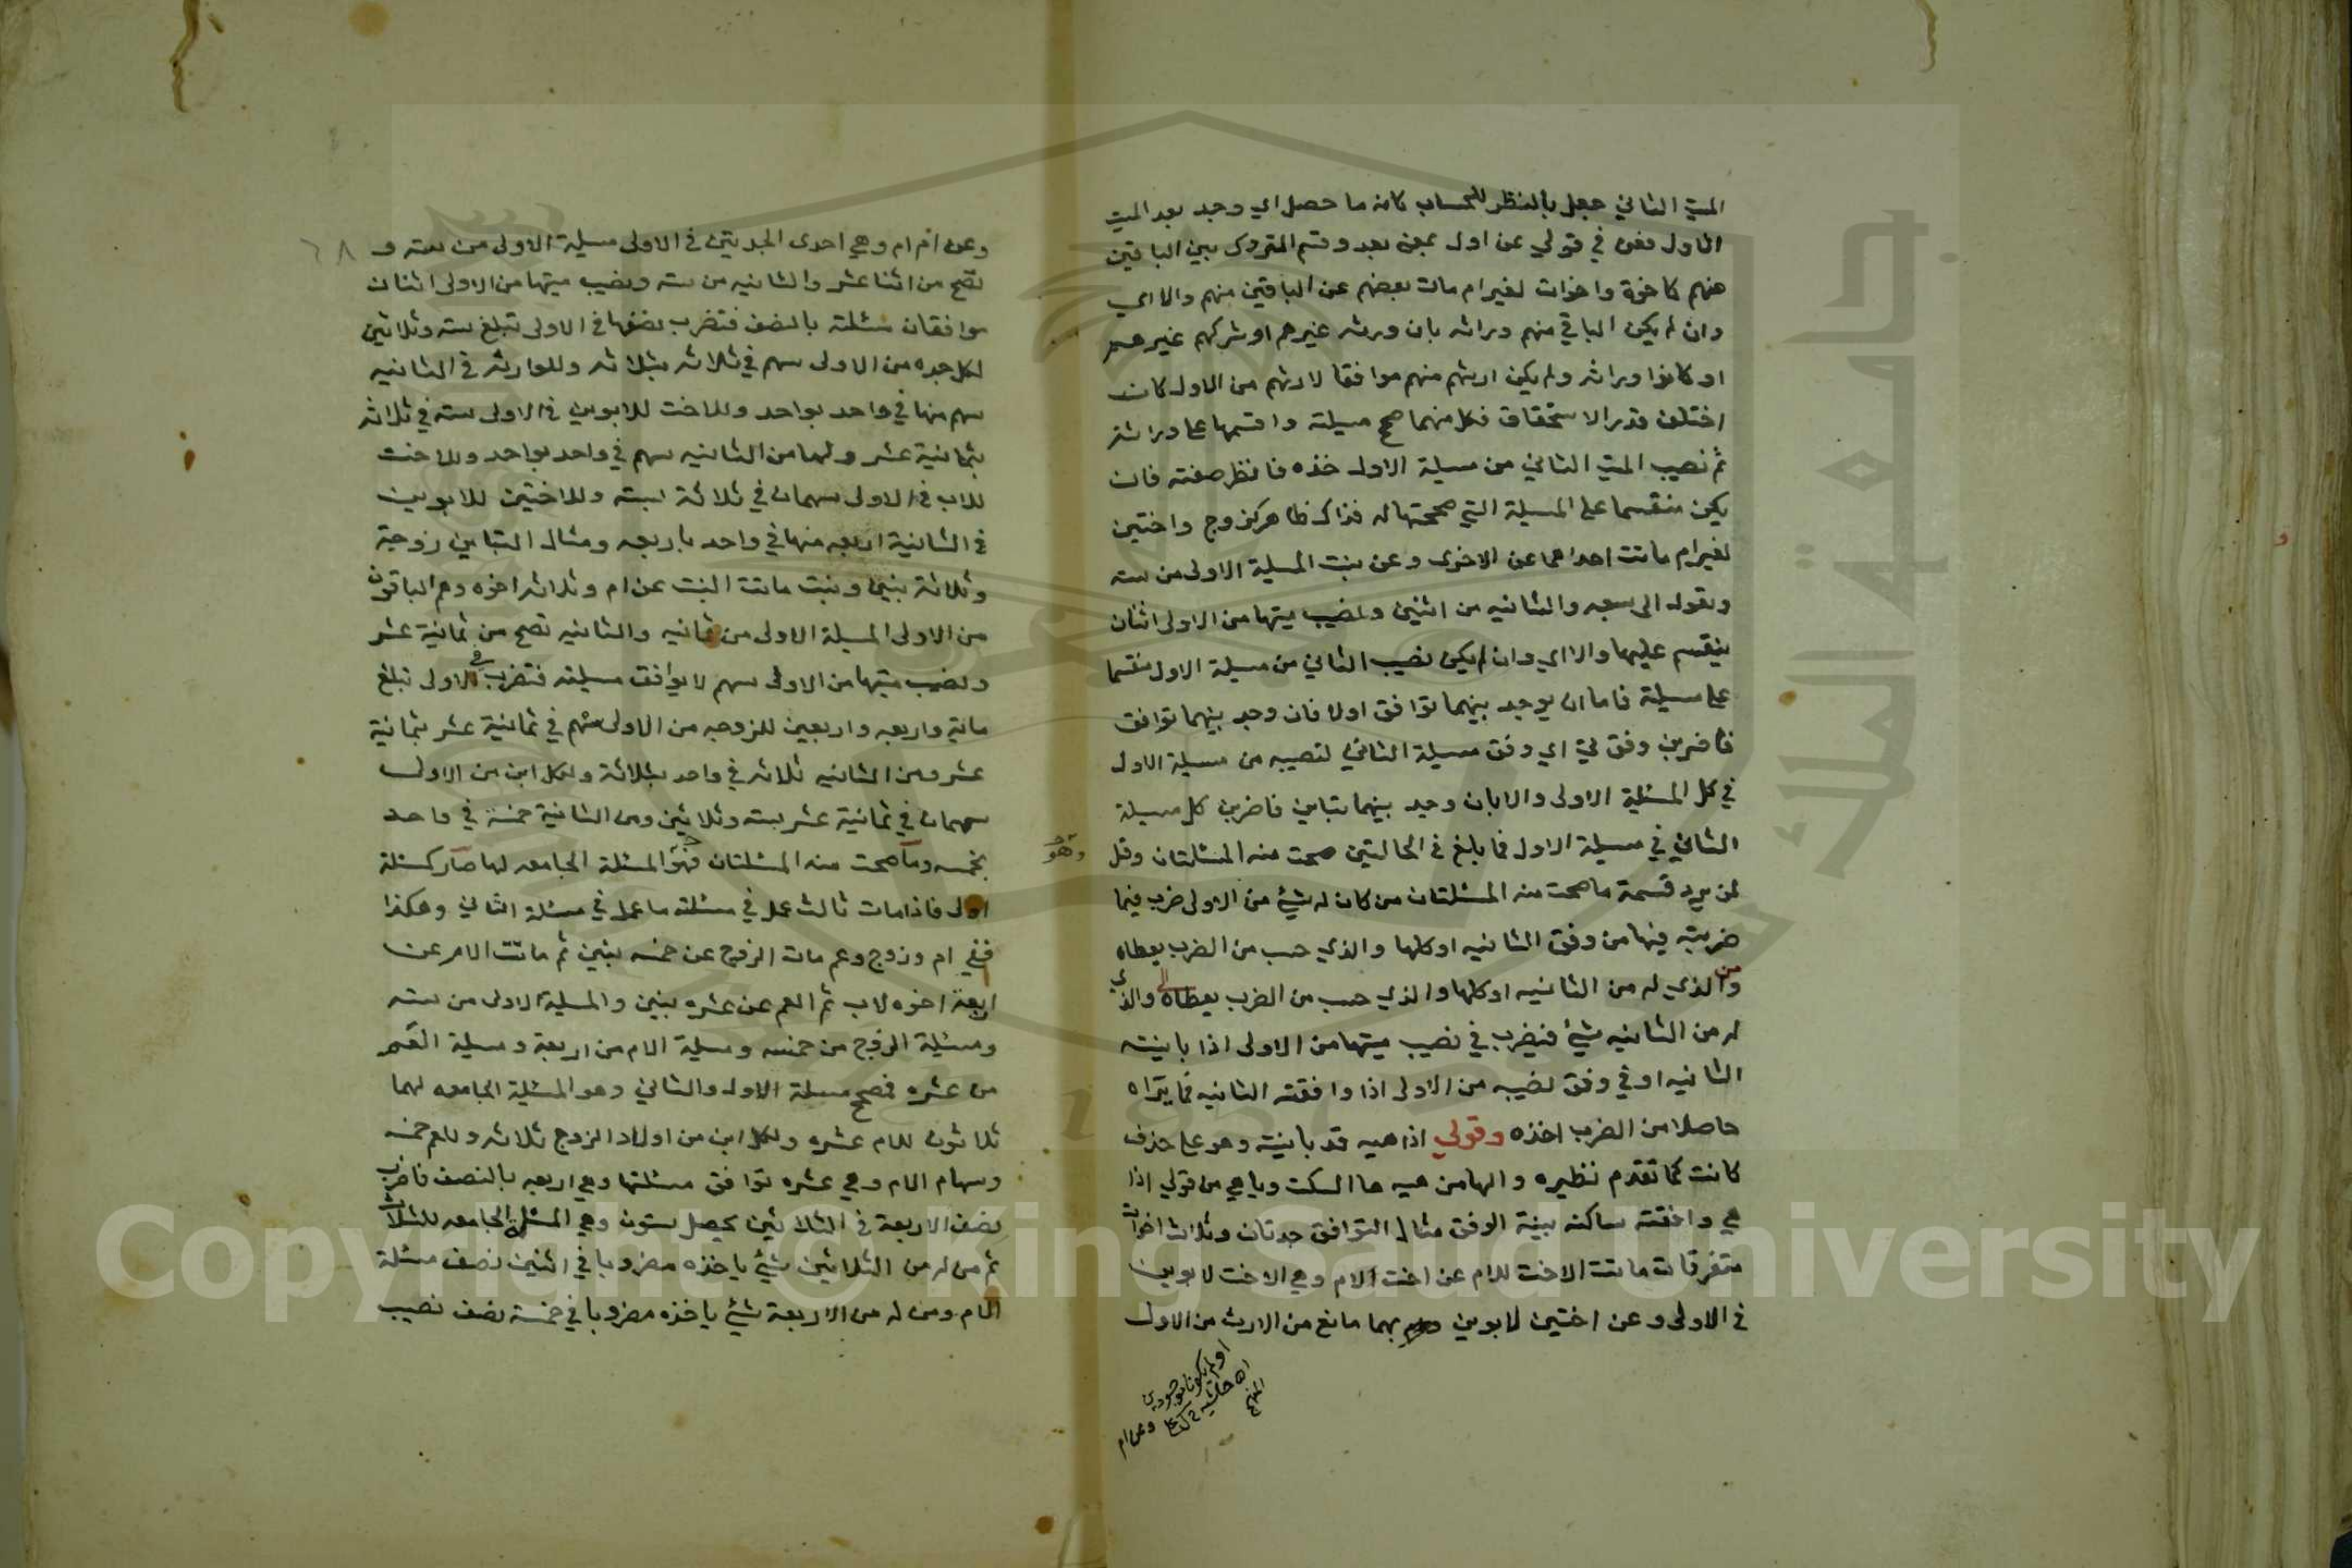 الميت الثاني جعل بالنظر للحساب كانه ما حصل اي وجد بعد الميت
الاول فعن في قولي عن اول بمعنى بعد وقسم المتروك بين الباقين
منهم كاخوة واخوات لغير ام مات بعضهم عن الباقين منهم والا اي
وان لم يكن الباقي منهم وراثه بان ورثه غيرهم او شركهم غيرهم
او كانوا وراثه ولم يكن ارثهم منهم موافقا لارثهم من الاول كان
اختلف قدر الاستحقاق فكل منهما صحح مسيلته واقسمها على وراثته
ثم نصيب الميت الثاني من مسيلة الاول خذه فانظر صفته فان
يكن منقسما على المسيلة التي صححتها له فذاك ظاهر كزوج واختين
لغير ام ماتت احداهما عن الاخرى وعن بنت المسيلة الاولى من سته
وتعول الى سبعه والثانيه من اثنين ونصيب ميتها من الاولى اثنان
ينقسم عليها والا اي وان لم يكن نصيب الثاني من مسيلة الاول منقسما
على مسيلته فاما ان يوجد بينهما توافق اولا فان وجد بينهما توافق
فاضربن وفق لي اي وفق مسيلة الثاني لنصيبه من مسيلة الاول
في كل المسئلة الاولى والا بان وجد بينهما تباين فاضربن كل مسيلة
الثاني في مسيلة الاول فما بلغ في الحالتين صحت منه المسئلتان وقل
لمن يريد قسمة ما صحت منه المسئلتان من كان له شيئ من الاولى ضرب فيما
ضربته فيها من وفق الثانيه او كلها والذي حسب من الضرب يعطاه
ومن الذي له من الثانيه او كلها والذي حسب من الضرب يعطاه الى والذي
له من الثانيه شيئ فيضرب في نصيب ميتها من الاولى اذا باينته
الثانيه او في وفق نصيبه من الاولى اذا وافقته الثانيه فما يراه
حاصلا من الضرب اخذه وقولي اذا هيه قد باينته وهو على حذف
كانت كما تقدم نظيره والها من هيه ها السكت ويا هي من قولي اذا
هي وافقته ساكنه بنية الوقف مثال التوافق جدتان وثلاث اخوات
متفرقات ماتت الاخت للام عن اخت الام وهي الاخت لابوين
في الاولى وعن اختين لابوين بهما مانع من الارث من الاول
او لم يكونا موجودين
اه حاشيه
المنهج
وعن ام
وعن ام ام وهي احدى الجدتين في الاولى مسيلة الاولى من سته و
تصح من اثنا عشر والثانيه من سته ونصيب ميتها من الاولى اثنان
موافقان مسئلته بالنصف فتضرب نصفها في الاولى تبلغ سته وثلاثين
لكل جده من الاولى سهم في ثلاثه بثلاثه وللوارثه في الثانيه
سهم منها في واحد بواحد وللاخت للابوين في الاولى سته في ثلاثه
بثمانية عشر ولها من الثانيه سهم في واحد بواحد وللاخت
للاب في الاولى سهمان في ثلاثة بسته وللاختين للابوين
في الثانية اربعه منها في واحد باربعه ومثال التباين زوجة
وثلاثة بنين وبنت ماتت البنت عن ام وثلاثه اخوه وهم الباقون
من الاولى المسيلة الاولى من ثمانيه والثانيه تصح من ثمانية عشر
ونصيب ميتها من الاولى سهم لا يوافق مسيلته فتضرب في الاولى تبلغ
ماية واربعه واربعين للزوجه من الاولى سهم في ثمانية عشر بثمانية
عشر ومن الثانيه ثلاثه في واحد بثلاثة ولكل ابن من الاولى
سهمان في ثمانية عشر بسته وثلاثين ومن الثانية خمسة في واحد
بخمسه وما صحت منه المسئلتان فهو المسئلة الجامعه لها صار كمسئلة
وهو
اولى فاذا مات ثالث عمل في مسئلته ما عمل في مسئلة الثاني وهكذا
ففي ام وزوج وعم مات الزوج عن خمسه بنين ثم ماتت الام عن
اربعة اخوه لاب ثم العم عن عشره بنين والمسيلة الاولى من سته
ومسئلة الزوج من خمسه ومسيلة الام من اربعة ومسيلة العم
من عشره فصحح مسيلة الاول والثاني وهو المسئلة الجامعه لهما
ثلاثون للام عشره ولكل ابن من اولاد الزوج ثلاثه وللعم خمسه
وسهام الام وهي عشره توافق مسئلتها وهي اربعه بالنصف فاضرب
نصف الاربعة في الثلاثين يحصل ستون وهي المسئلة الجامعه للثلاث
ثم من له من الثلاثين شيئ ياخذه مضروبا في اثنين نصف مسئلة
الام ومن له من الاربعة شيئ ياخذه مضروبا في خمسة نصف نصيب
٦٨
جامعة الملك سعود
Copyright © King Saud University
1957